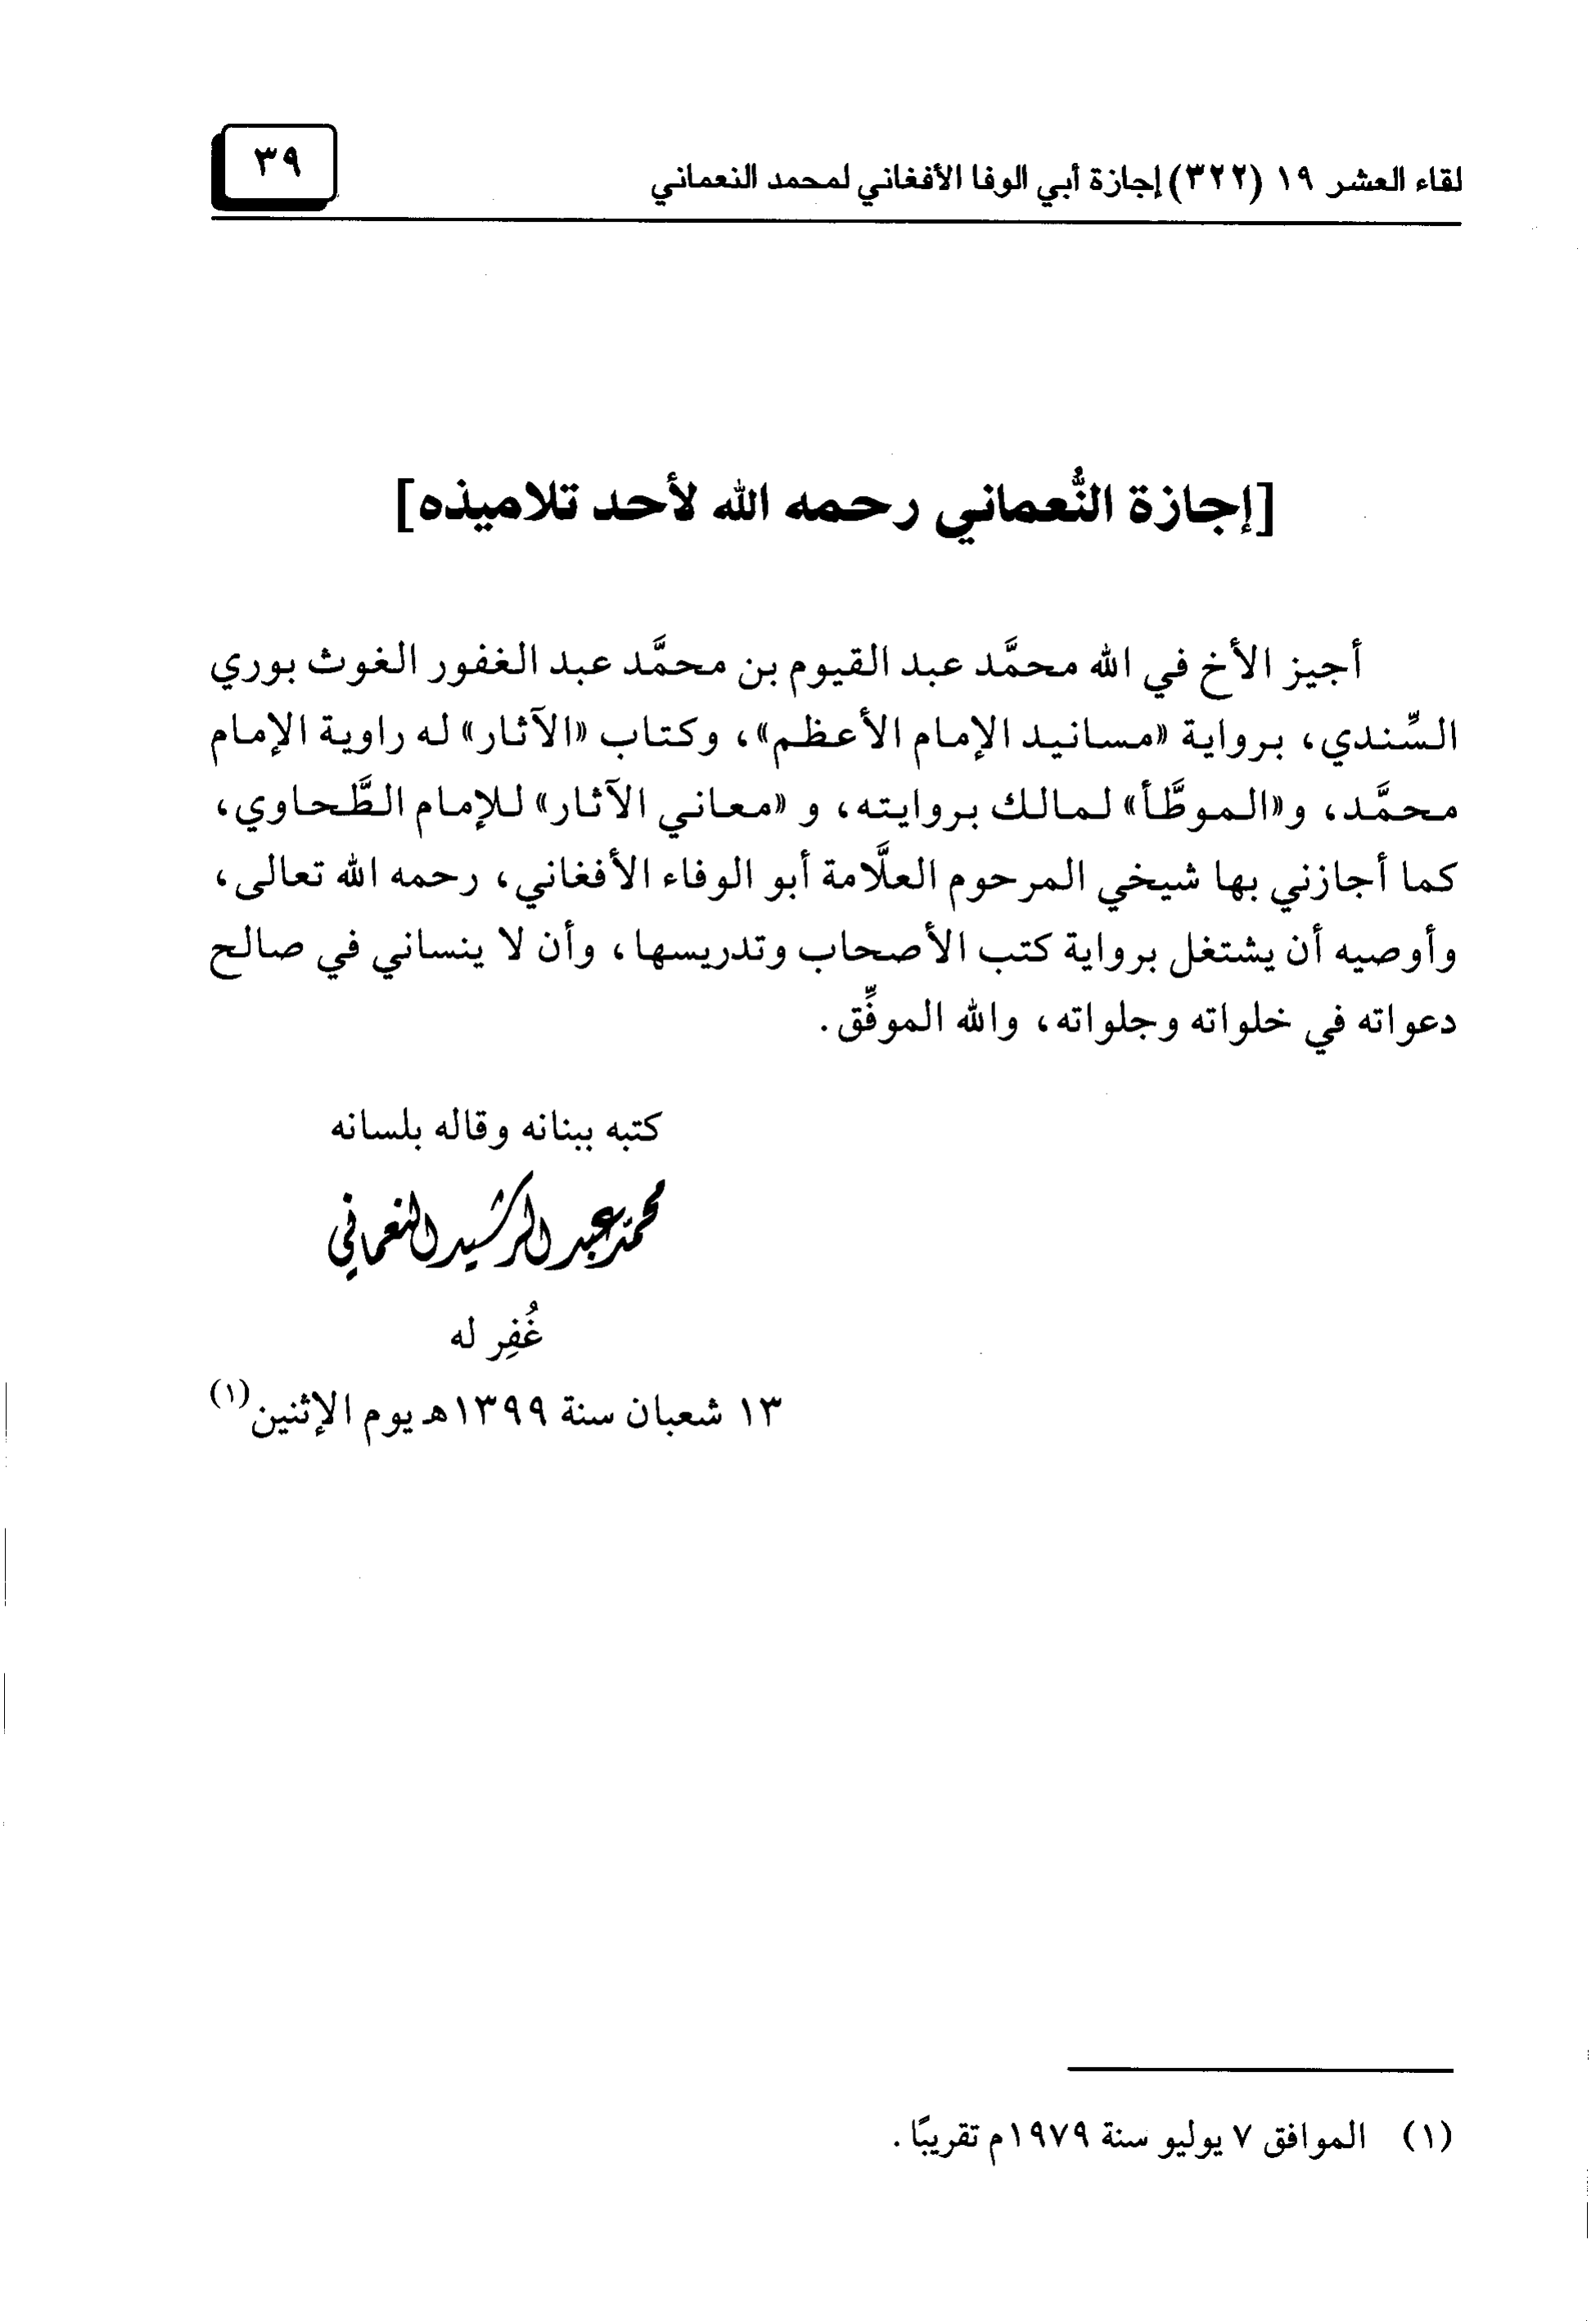 لقاء العشر ١٩ (٣٢٢) إجازة أبي الوفا الأفغاني لمحمد النعماني
٣٩
[إجازة النُّعماني رحمه الله لأحد تلاميذه]
أجيز الأخ في الله محمَّد عبد القيوم بن محمَّد عبد الغفور الغوث بوري
السِّندي، برواية «مسانيد الإمام الأعظم»، وكتاب «الآثار» له راوية الإمام
محمَّد، و«الموطَّأ» لمالك بروايته، و «معاني الآثار» للإمام الطَّحاوي،
كما أجازني بها شيخي المرحوم العلَّامة أبو الوفاء الأفغاني، رحمه الله تعالى،
وأوصيه أن يشتغل برواية كتب الأصحاب وتدريسها، وأن لا ينساني في صالح
دعواته في خلواته وجلواته، والله الموفِّق.
كتبه ببنانه وقاله بلسانه
محمد عبد الرشيد النعماني
غُفِر له
١٣ شعبان سنة ١٣٩٩هـ يوم الإثنين(١)
(١) الموافق ٧ يوليو سنة ١٩٧٩م تقريبًا.